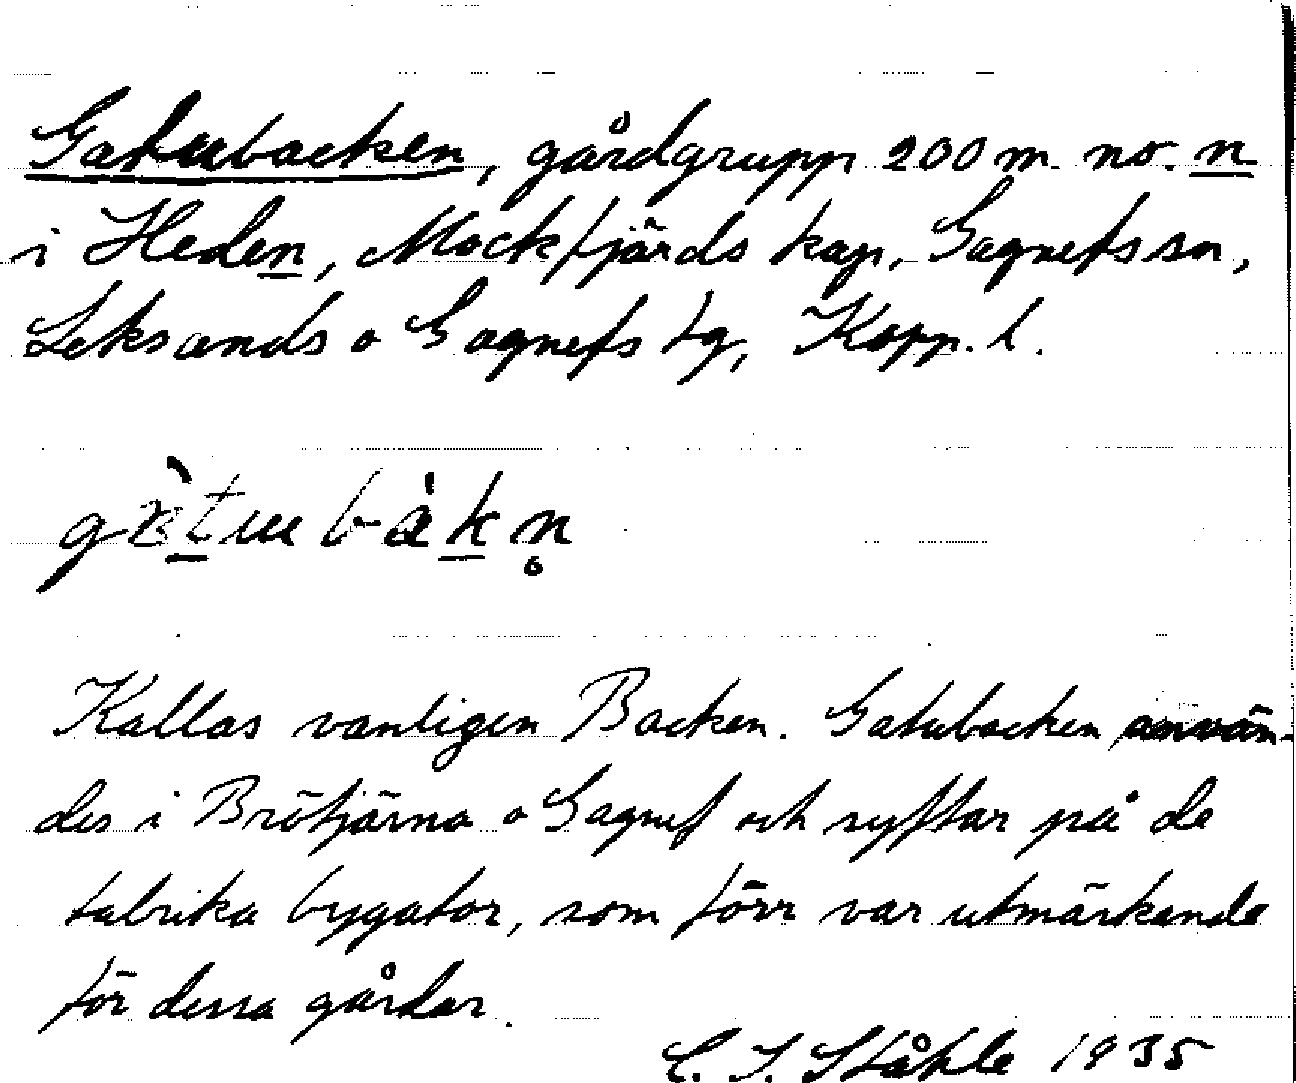 Gatubacken, gårdgrupp 200 m. no. n
i Heden, Mockfjärds kap, Gagnefs sn,
Leksands o Gagnefs tg, Kopp. l.
gatubakn
Kallas vanligen Backen. Gatubacken använ-
des i Brötjärna o Gagnef och syftar på de
talrika bygator, som förr var utmärkande
för dessa gårdar.
C. I. Ståhle 1935